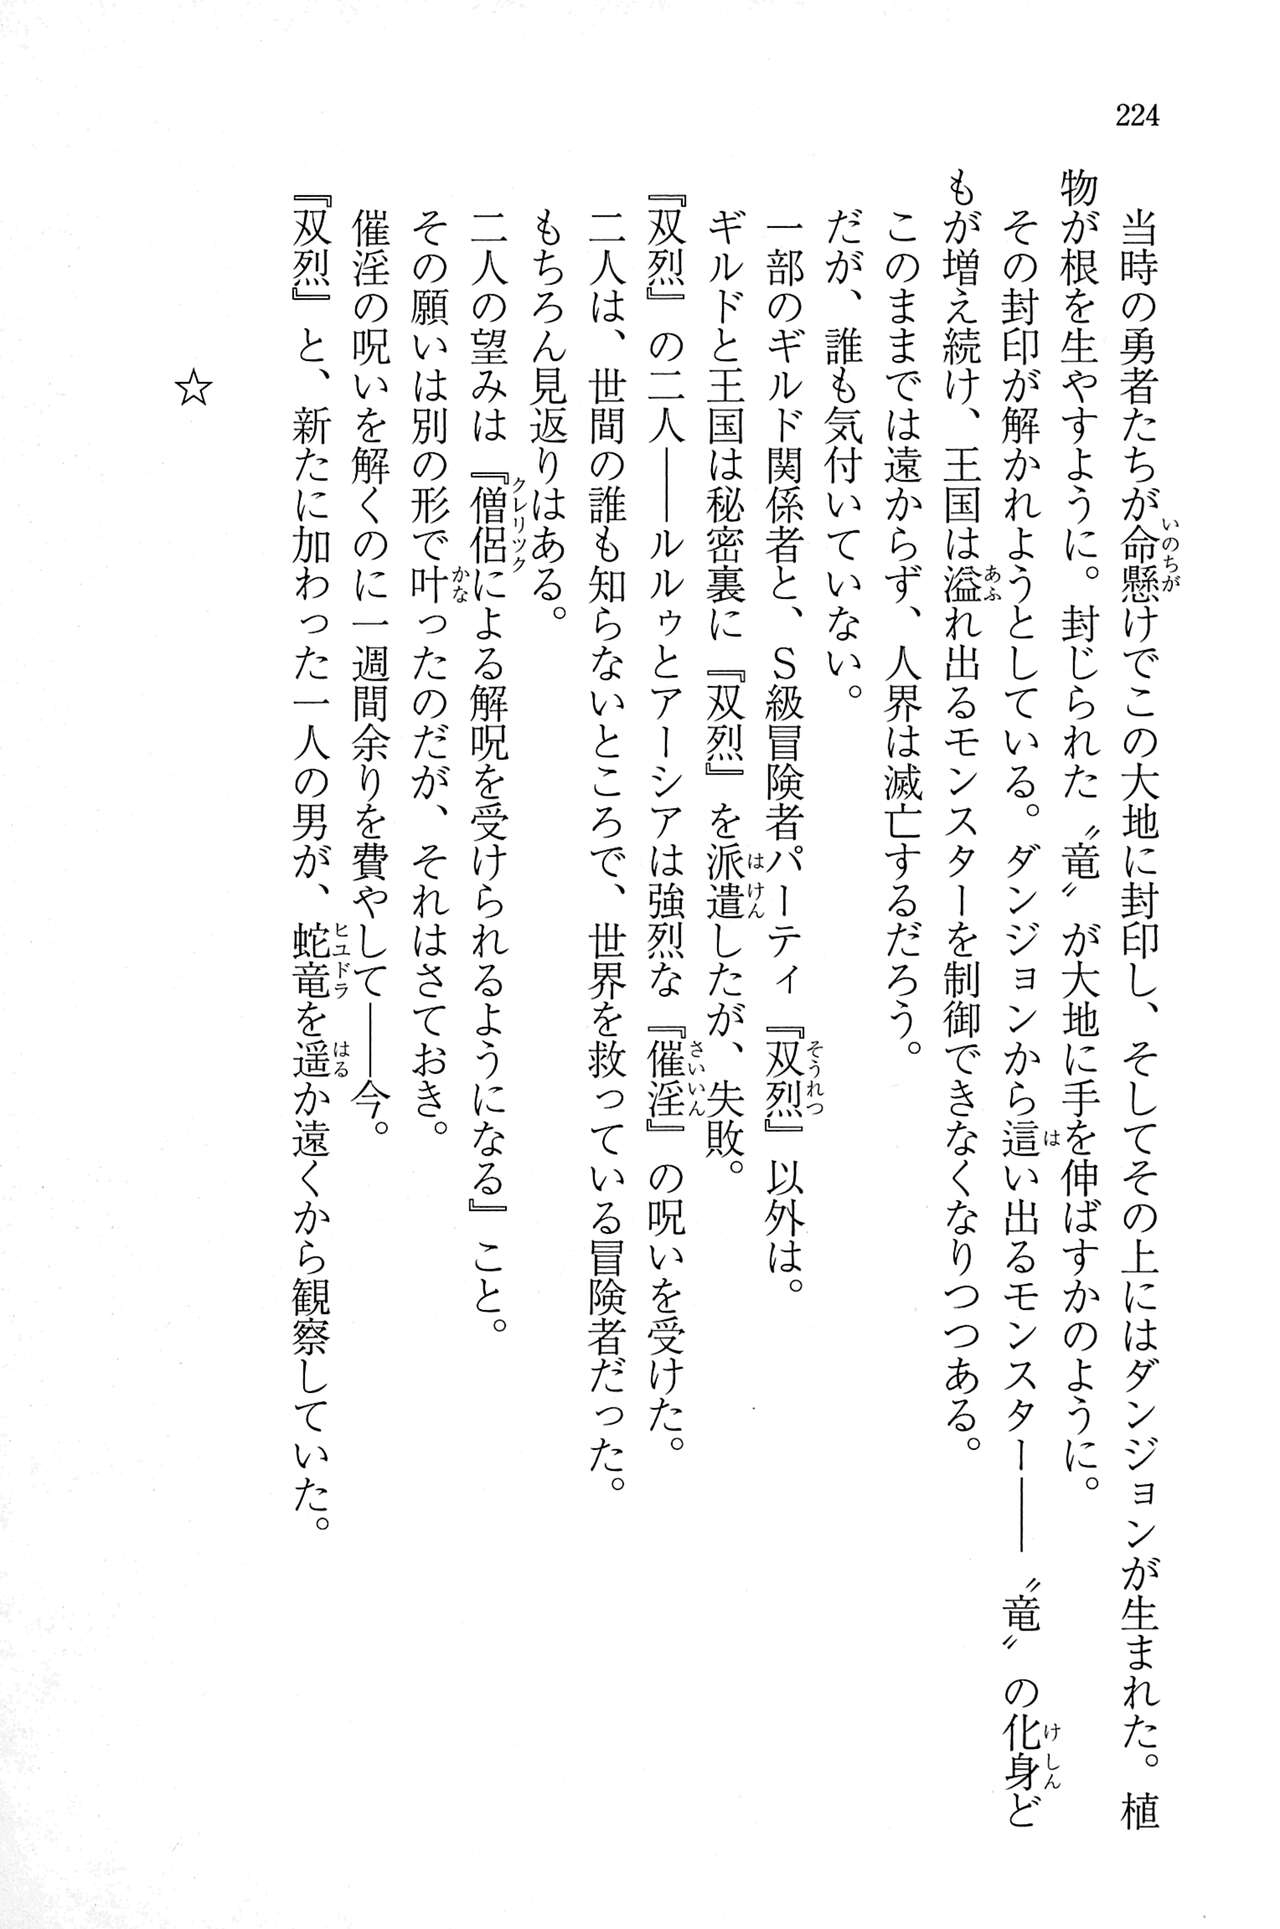 224
当時の勇者たちが命懸けでこの大地に封印し、そしてその上にはダンジョンが生まれた。植
物が根を生やすように。封じられた〝竜〟が大地に手を伸ばすかのように。
その封印が解かれようとしている。ダンジョンから這い出るモンスター――〝竜〟の化身ど
もが増え続け、王国は溢れ出るモンスターを制御できなくなりつつある。
このままでは遠からず、人界は滅亡するだろう。
だが、誰も気付いていない。
一部のギルド関係者と、Ｓ級冒険者パーティ『双烈』以外は。
ギルドと王国は秘密裏に『双烈』を派遣したが、失敗。
『双烈』の二人――ルルゥとアーシアは強烈な『催淫』の呪いを受けた。
二人は、世間の誰も知らないところで、世界を救っている冒険者だった。
もちろん見返りはある。
二人の望みは『僧侶による解呪を受けられるようになる』こと。
その願いは別の形で叶ったのだが、それはさておき。
催淫の呪いを解くのに一週間余りを費やして――今。
『双烈』と、新たに加わった一人の男が、蛇竜を遥か遠くから観察していた。
☆
いのちが
は
けしん
あふ
そうれつ
はけん
さいいん
クレリック
かな
ヒユドラ
はる